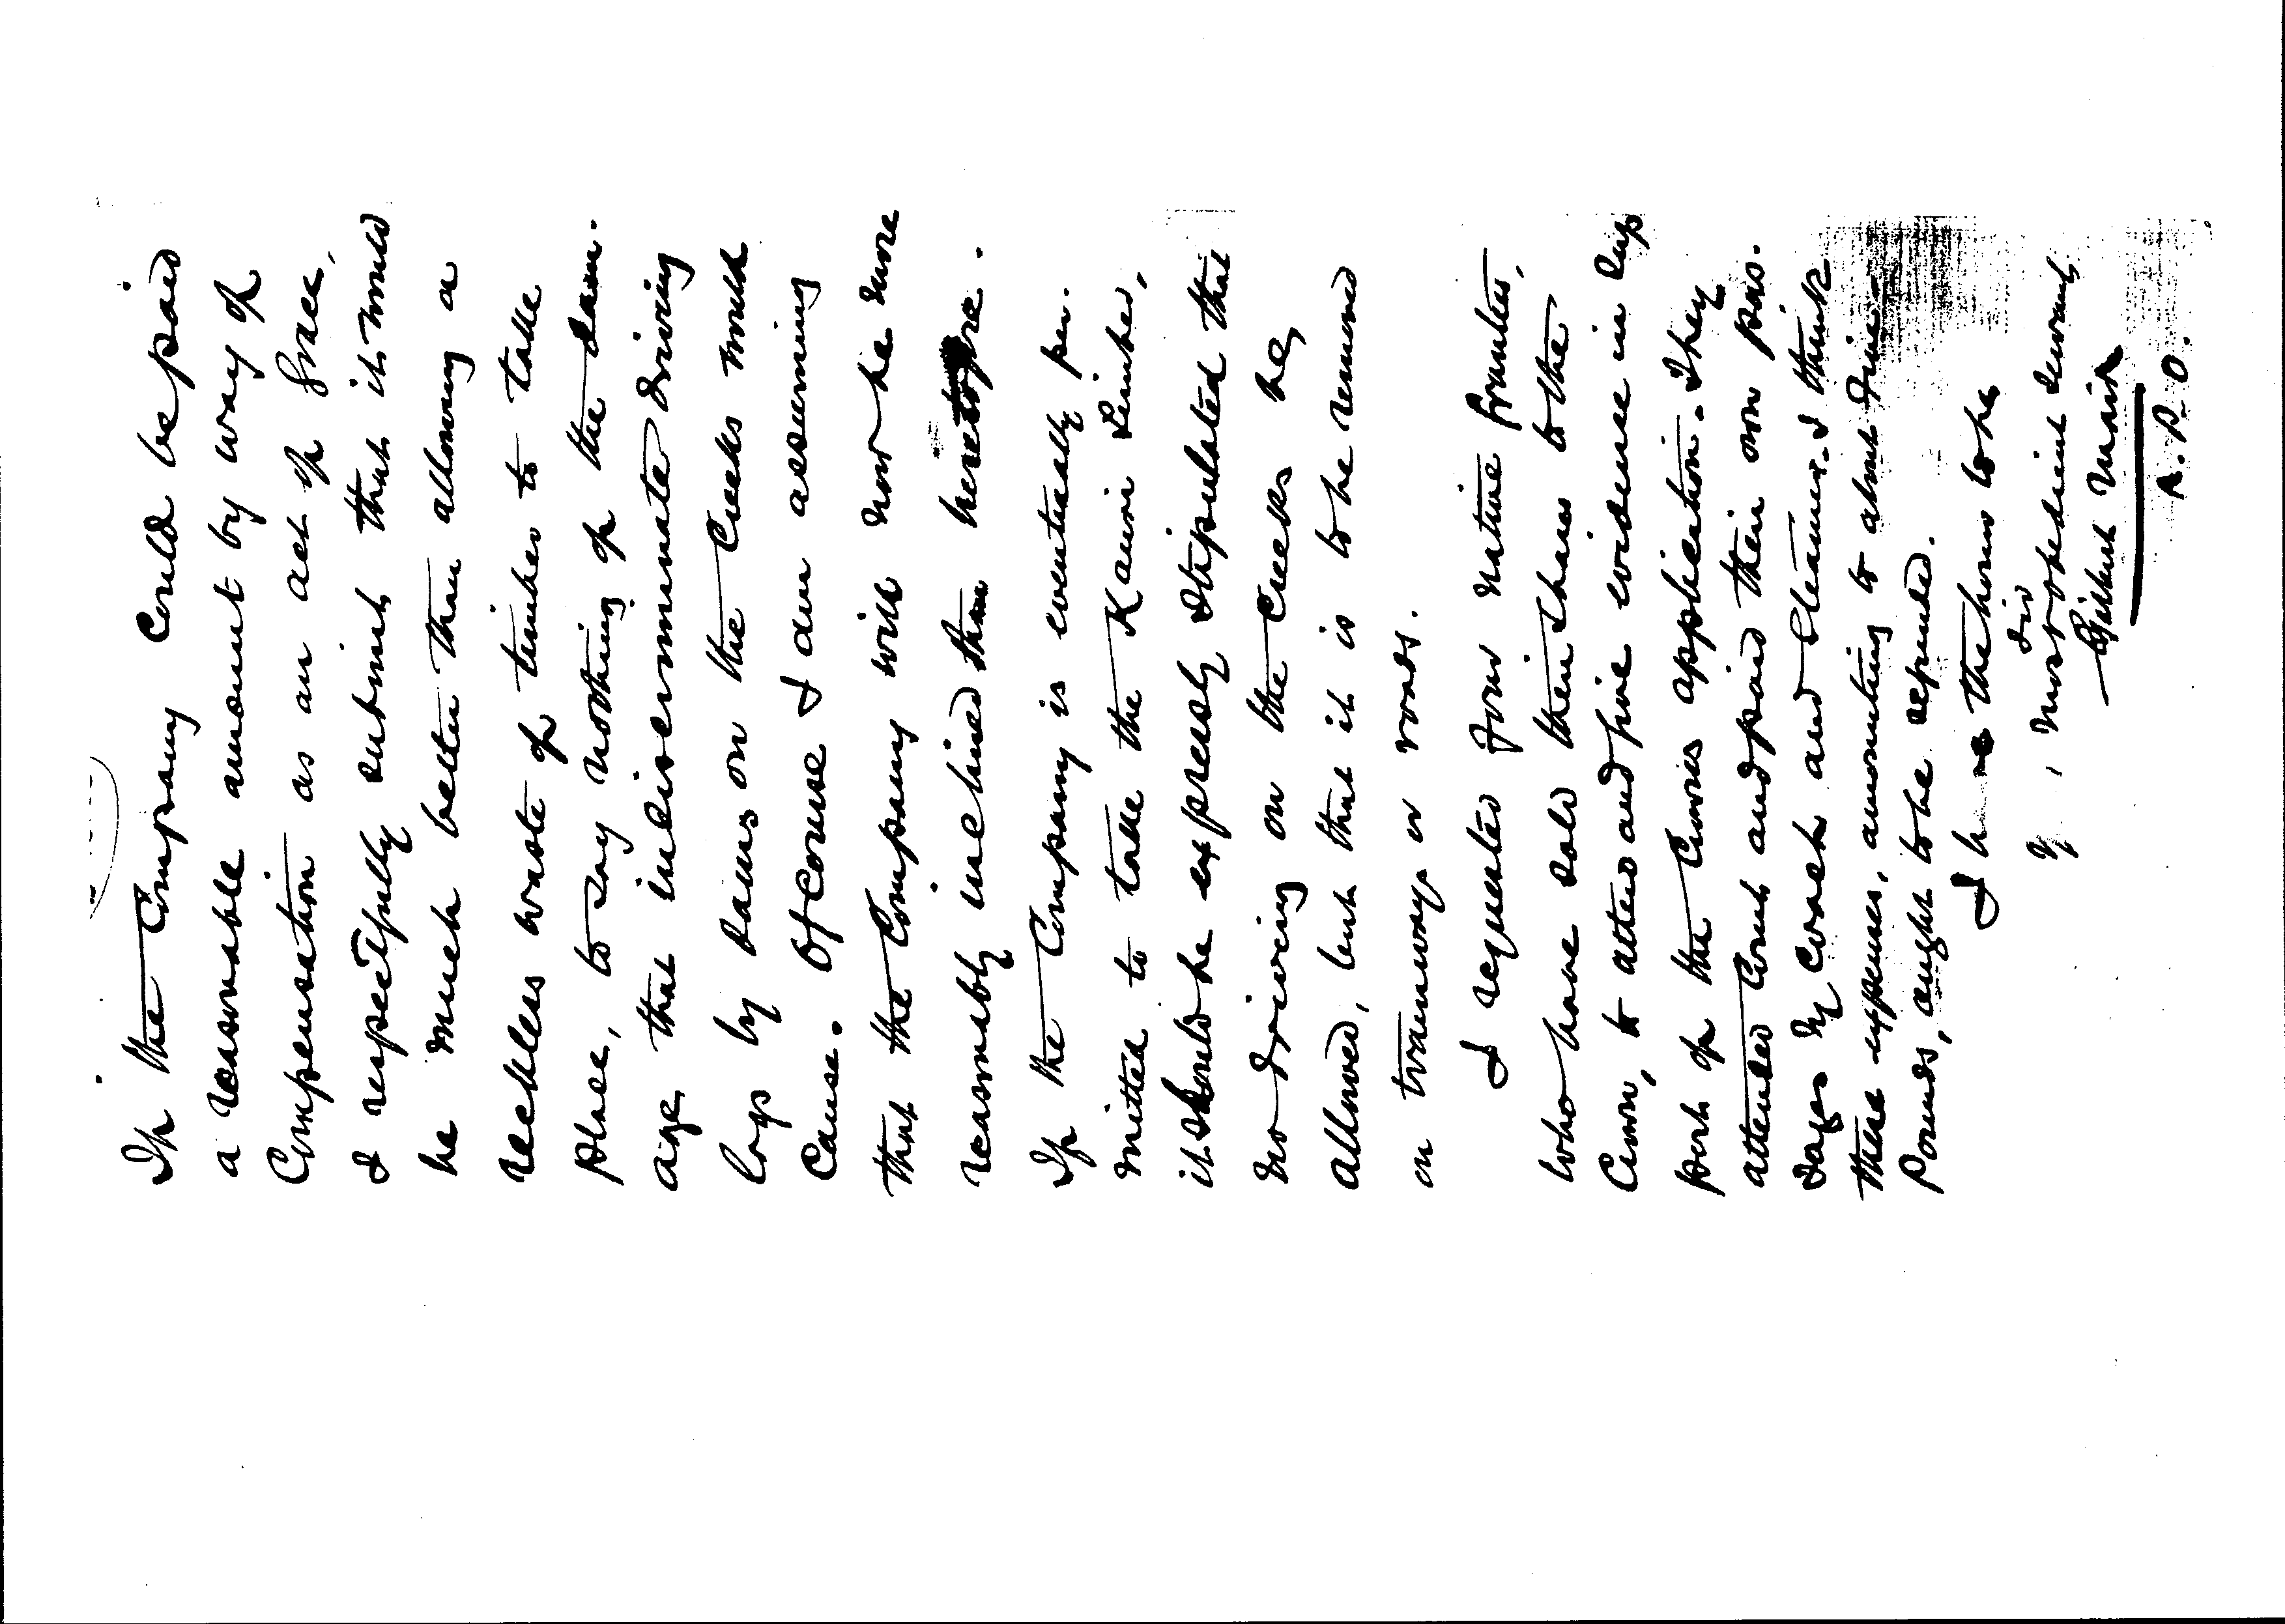 If the Company could be paid
a reasonable amount by way of
Compensation as an act of Grace,
I respectfully submit that it would
be much better than allowing a
reckless waste of timber to take
place, to say nothing of the dam-
age that indiscriminate driving
logs by dams on the Creeks would
cause. Of course I am assuming
that the Company will now be more
reasonably inclined than heretofore.
If the Company is eventually per-
mitted to take the Kauri timber,
it should be expressly stipulated that
no driving on the Creeks be
allowed, but that it is to be removed
on tramways or roads.
I requested four native Grantees,
who have sold their shares to the
Crown, to attend and give evidence in sup
port of the Crown's application. They
attended Court and paid their own pas-
sages by coach and steamer. I think
these expenses, amounting to about five
Pounds, ought to be refunded.
I have the honor to be
Sir
Y, most obedient servant
Gilbert Mair
L.P.O.